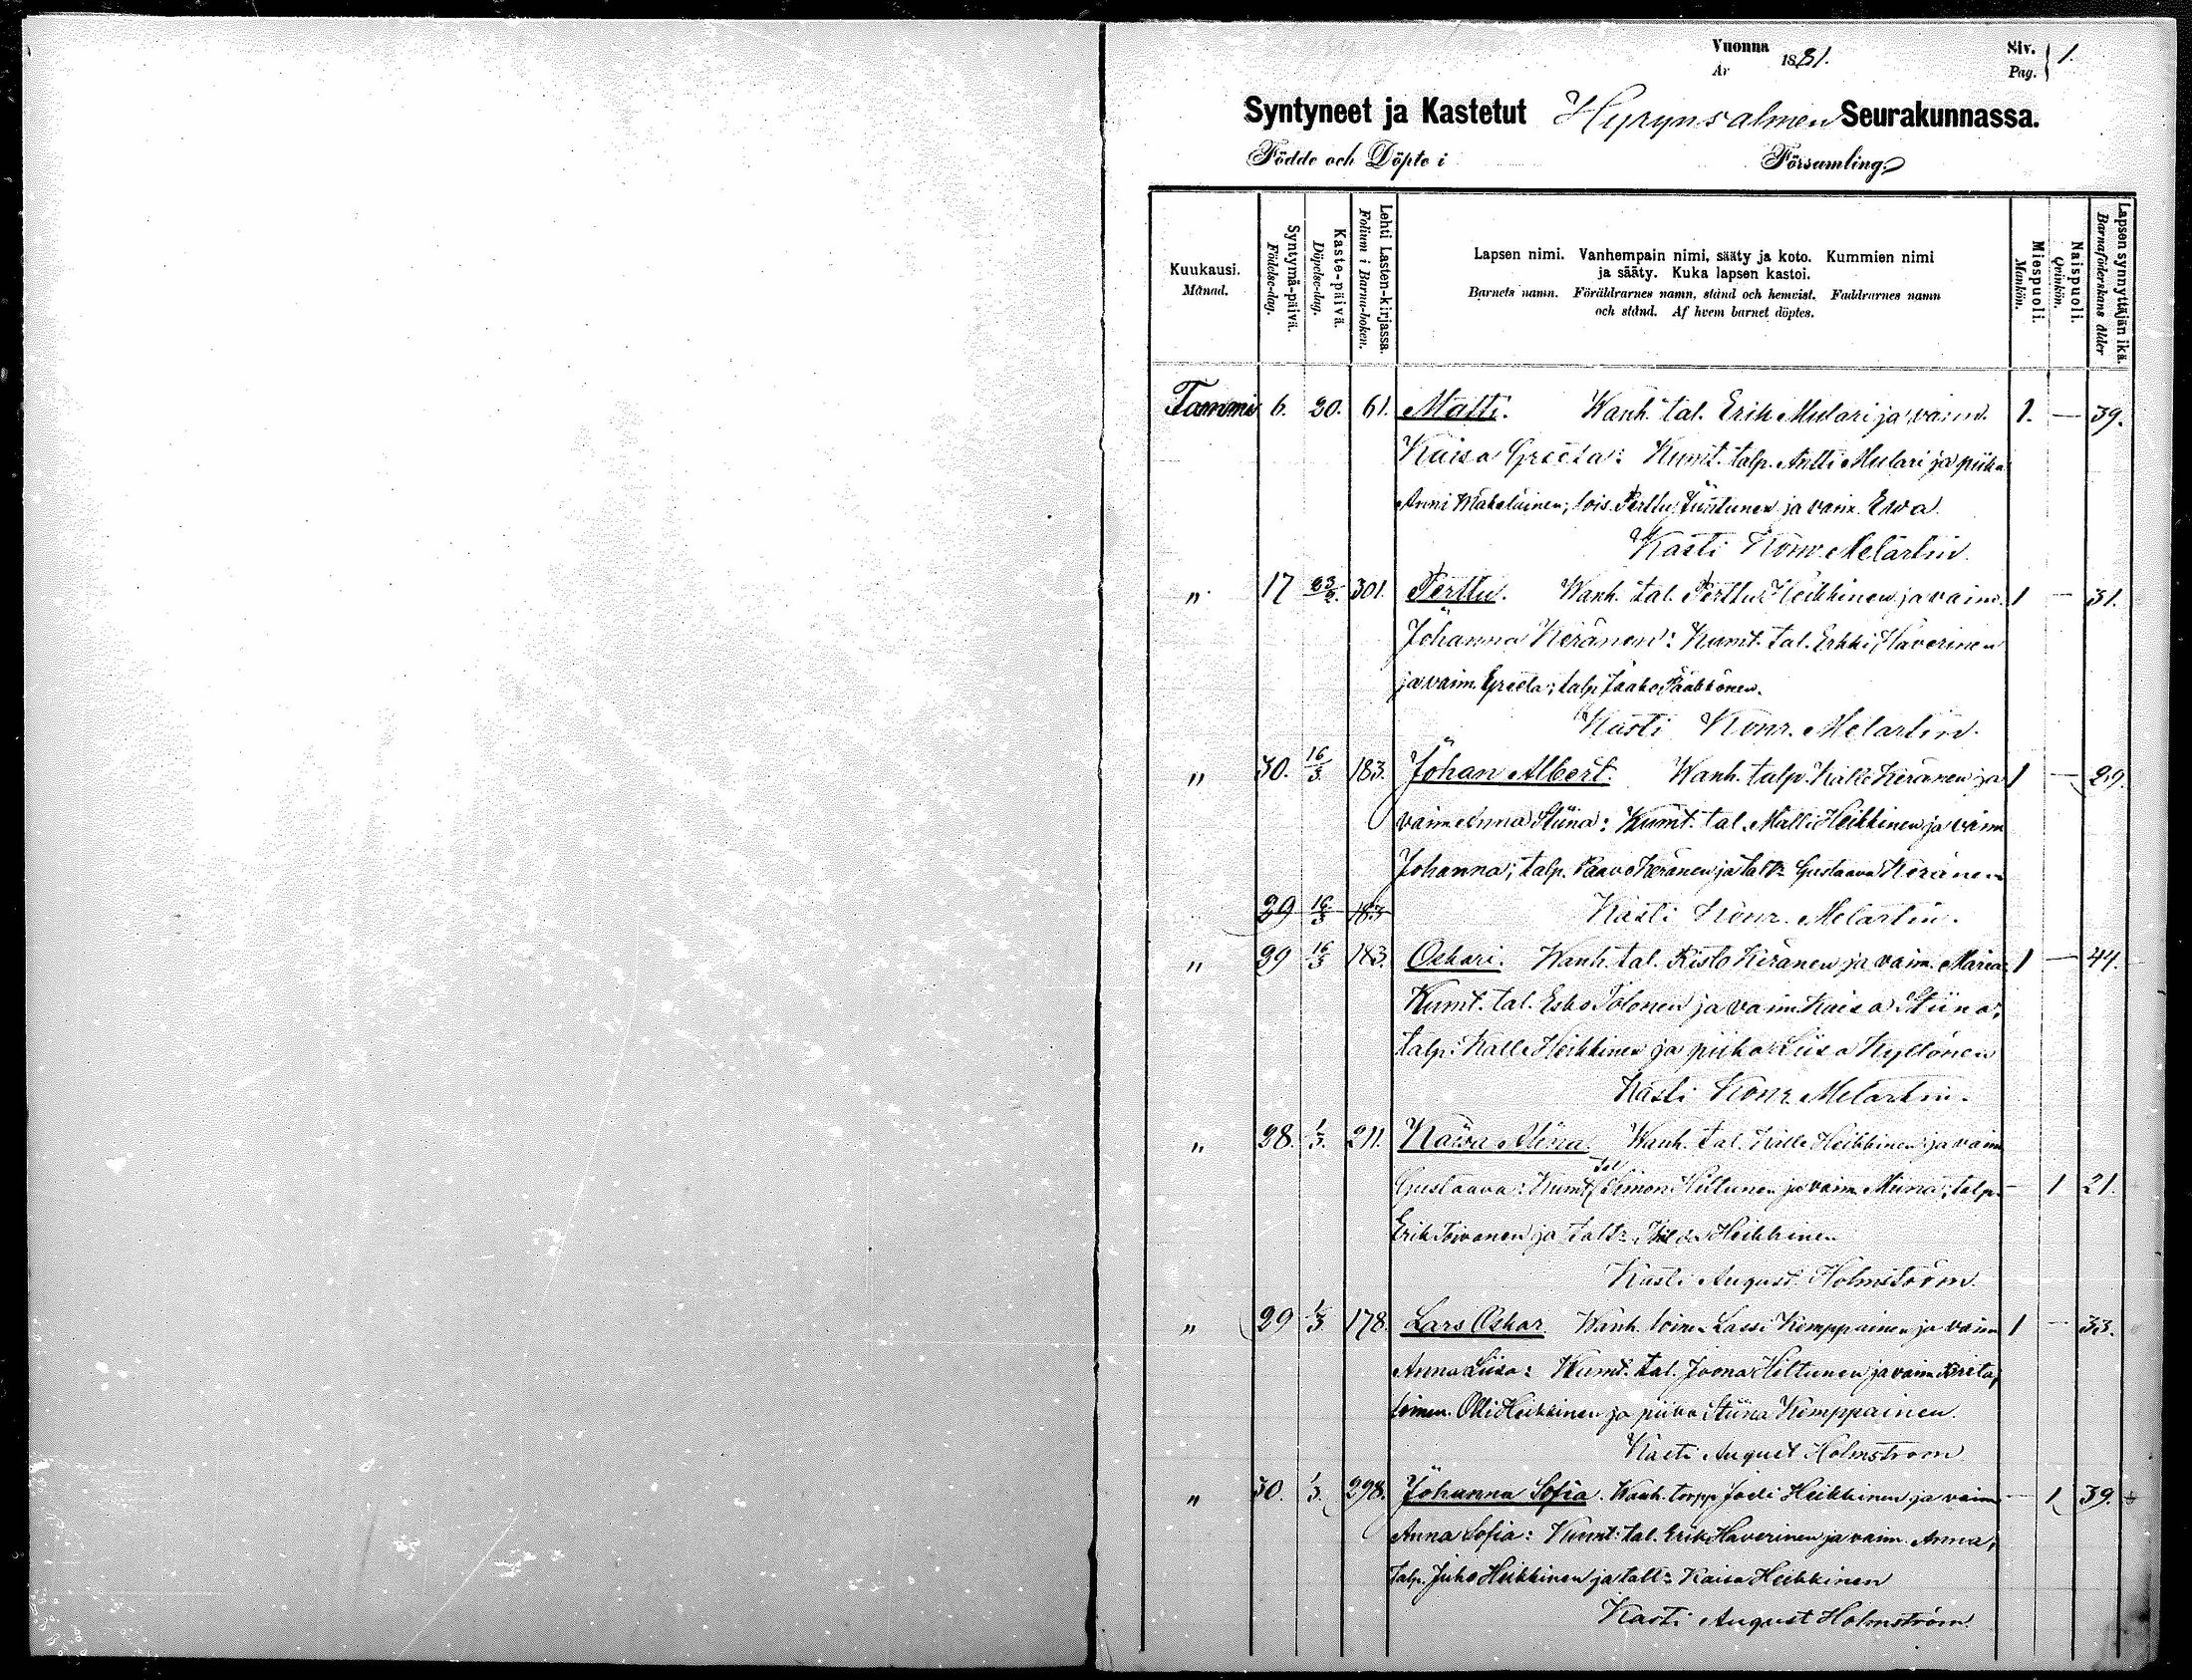 Vuonna 1881. Siv. 1.
År Pag.
Syntyneet ja Kastetut Hyrynsalmen Seurakunnassa.
Födde och Döpte i Församling.
Kuukausi. Månad.
Syntymä-päivä. Födelse-dag.
Kaste-päivä. Döpelse-dag.
Lehti Lasten-kirjassa. Folium i Barna-boken.
Lapsen nimi. Vanhempain nimi, sääty ja koto. Kummien nimi
ja sääty. Kuka lapsen kastoi.
Barnets namn. Föräldrarnes namn, stånd och hemvist. Faddrarnes namn
och stånd. Af hvem barnet döptes.
Miespuoli. Mankön.
Naispuoli. Qvinkön.
Lapsen synnyttäjän ikä. Barnaföderskans ålder
Tammi 6. 20. 61. Matti. Wanh. tal. Erik Mulari ja vaim. 1. — 39.
Kaisa Greeta: Kumt. talp. Antti Mulari ja piika
Anni Mäkeläinen; lois. Perttu Juntunen ja vaim. Ewa.
Kasti Konr. Melartin.
" 17 23/2. 301. Perttu. Wanh. tal. Perttu Heikkinen ja vaim. 1 — 31.
Johanna Keränen: Kumt. tal. Erkki Haverinen
ja vaim. Greeta; talp. Jaako Pääkkönen.
Kasti Konr. Melartin.
" 30. 16/3 183. Johan Albert. Wanh. talp. Kalle Keränen ja 1 — 29.
vaim Anna Stiina: Kumt. tal. Matti Heikkinen ja vaim
Johanna; talp. Paavo Keränen ja talt: Gustaava Keränen
29 16/3 183 Kasti Konr. Melartin.
" 29 16/3 143. Oskari. Wanh. tal. Risto Keränen ja vaim. Maria: 1 — 44.
Kumt. tal. Esko Polonen ja vaim. Kaisa Stiina;
talp. Kalle Heikkinen ja piika Liisa Kyllönen
Kasti Konr. Melartin.
" 28. 1/3. 211. Alina. Wanh. tal. Kalle Heikkinen ja vaim
tal
Gustaava: Kumt. Simon Hiltunen ja vaim. Miina; talp. — 1 21.
Erik Toivanen ja talt: Hilda Heikkinen
Kasti August Holmström.
" 29 1/3. 178. Lars Oskar. Wanh. loinen Lassi Kemppainen ja vaim 1 — 33.
Anna Liisa: Kumt. tal. Joona Hiltunen ja vaim. Brita;
loinen. Olli Heikkinen ja piika Stiina Kemppainen.
Kasti August Holmström
" 30. 1/3. 298. Johanna Sofia. Wanh. torpp. Heikkinen ja vaim — 1 39.
Anna Sofia: Kumt: tal. Erik Haverinen ja vaim. Anna;
talp. Juho Heikkinen ja talt: Kaisa Heikkinen
Kasti August Holmström.